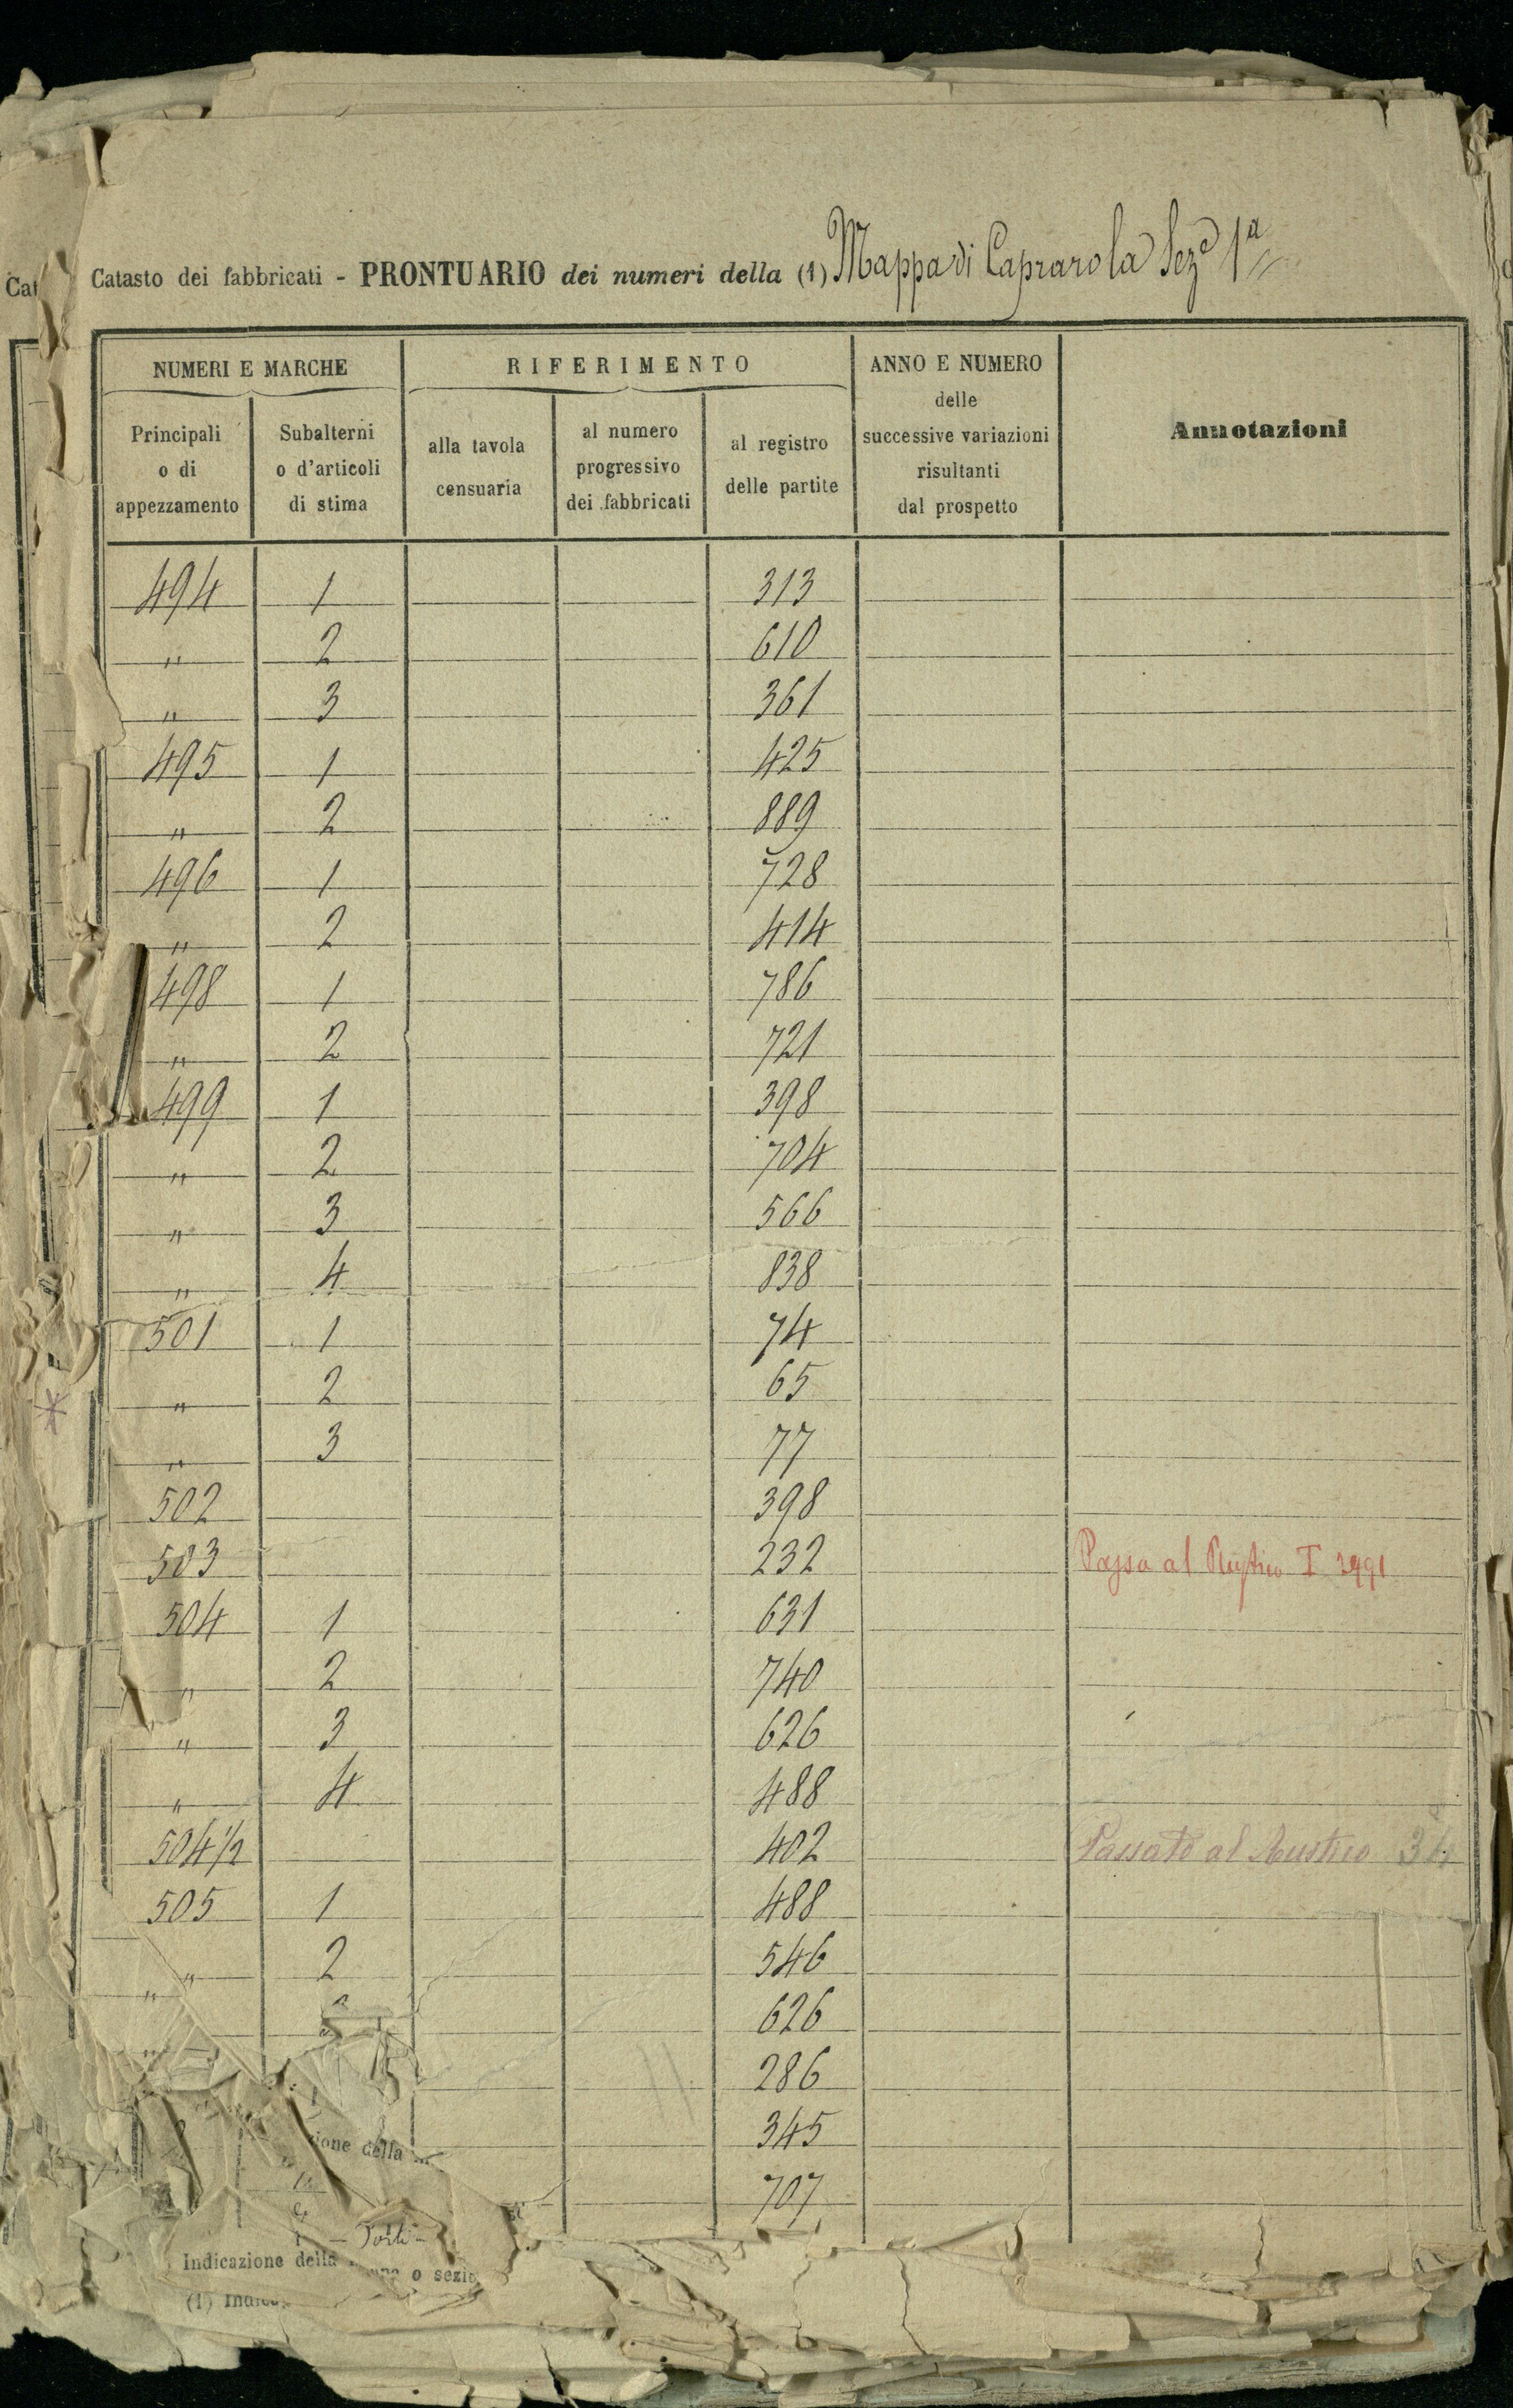 Catasto dei fabbricati - PRONTUARIO dei numeri della (1) Mappa di Caprarola Sezᵉ 1ª
NUMERI E MARCHE
RIFERIMENTO
ANNO E NUMERO
delle
successive variazioni
risultanti
dal prospetto
Annotazioni
Principali
o di
appezzamento
Subalterni
o d'articoli
di stima
alla tavola
censuaria
al numero
progressivo
dei fabbricati
al registro
delle partite
494 1 313
" 2 610
" 3 361
495 1 425
" 2 889
496 1 728
" 2 414
498 1 786
" 2 721
499 1 398
" 2 704
" 3 566
" 4 838
501 1 74
" 2 65
" 3 77
502 398
503 232 Passa al Rustico I 3991
504 1 631
" 2 740
" 3 626
" 4 488
504 1/2 402 Passato al Rustico
505 1 488
" 2 546
" 626
" 286
345
707
della
Indicazione della
(1)